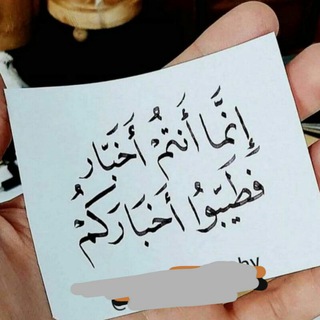 إِنَّمَا أَنتُمْ أَخبَار
فَطَيِّبُوا أَخبَارَكُمْ
by